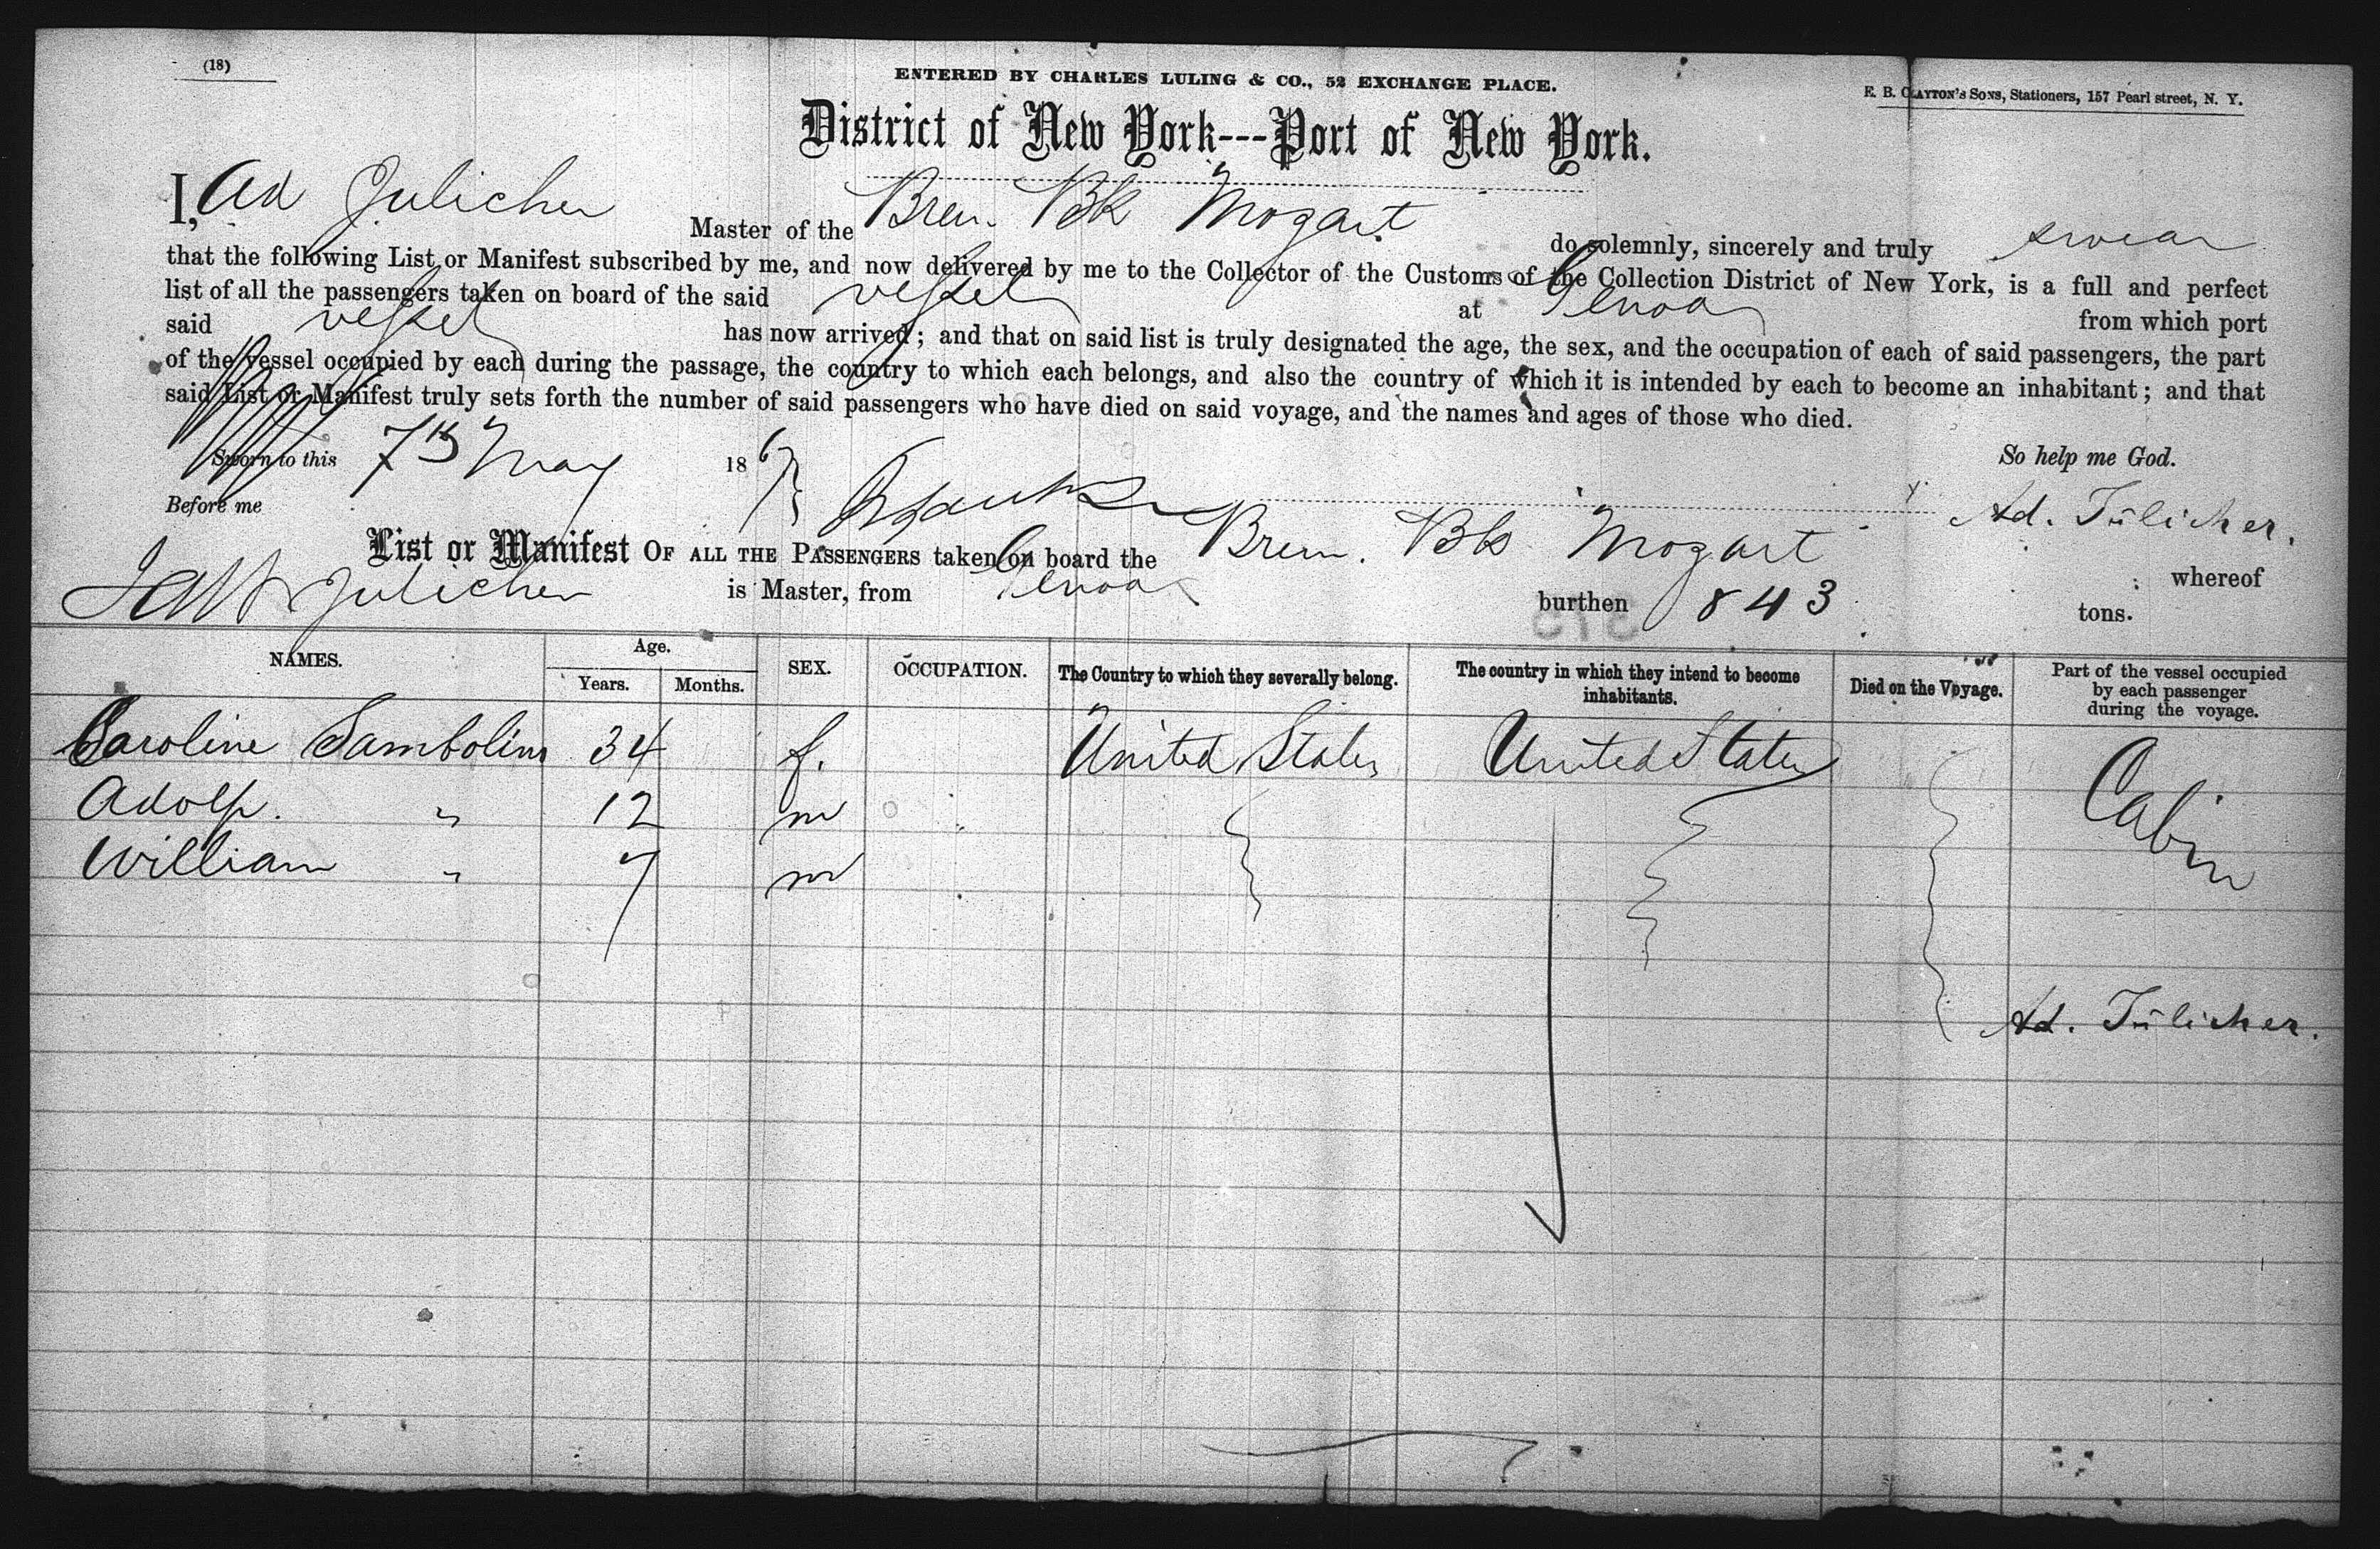 (18)
ENTERED BY CHARLES LULING & CO., 52 EXCHANGE PLACE.
E. B. CLAYTON'S SONS, Stationers, 157 Pearl street, N. Y.
District of New York---Port of New York.
I, Ad Julicher Master of the Brem. Bk Mozart do solemnly, sincerely and truly swear
that the following List or Manifest subscribed by me, and now delivered by me to the Collector of the Customs of the Collection District of New York, is a full and perfect
list of all the passengers taken on board of the said vessel at Genoa from which port
said vessel has now arrived; and that on said list is truly designated the age, the sex, and the occupation of each of said passengers, the part
of the vessel occupied by each during the passage, the country to which each belongs, and also the country of which it is intended by each to become an inhabitant; and that
said List or Manifest truly sets forth the number of said passengers who have died on said voyage, and the names and ages of those who died.
Sworn to this 7th May 1867
So help me God.
Before me
Ad. Jülicher.
List or Manifest OF ALL THE PASSENGERS taken on board the Brem. Bk Mozart whereof
Julicher is Master, from Genoa burthen 843 tons.
NAMES. Age. Years. Months. SEX. OCCUPATION. The Country to which they severally belong. The country in which they intend to become inhabitants. Died on the Voyage. Part of the vessel occupied by each passenger during the voyage.
Caroline Sambolino 34 f. United States United States Cabin
Adolp. " 12 m
William " 7 m
Ad. Jülicher.